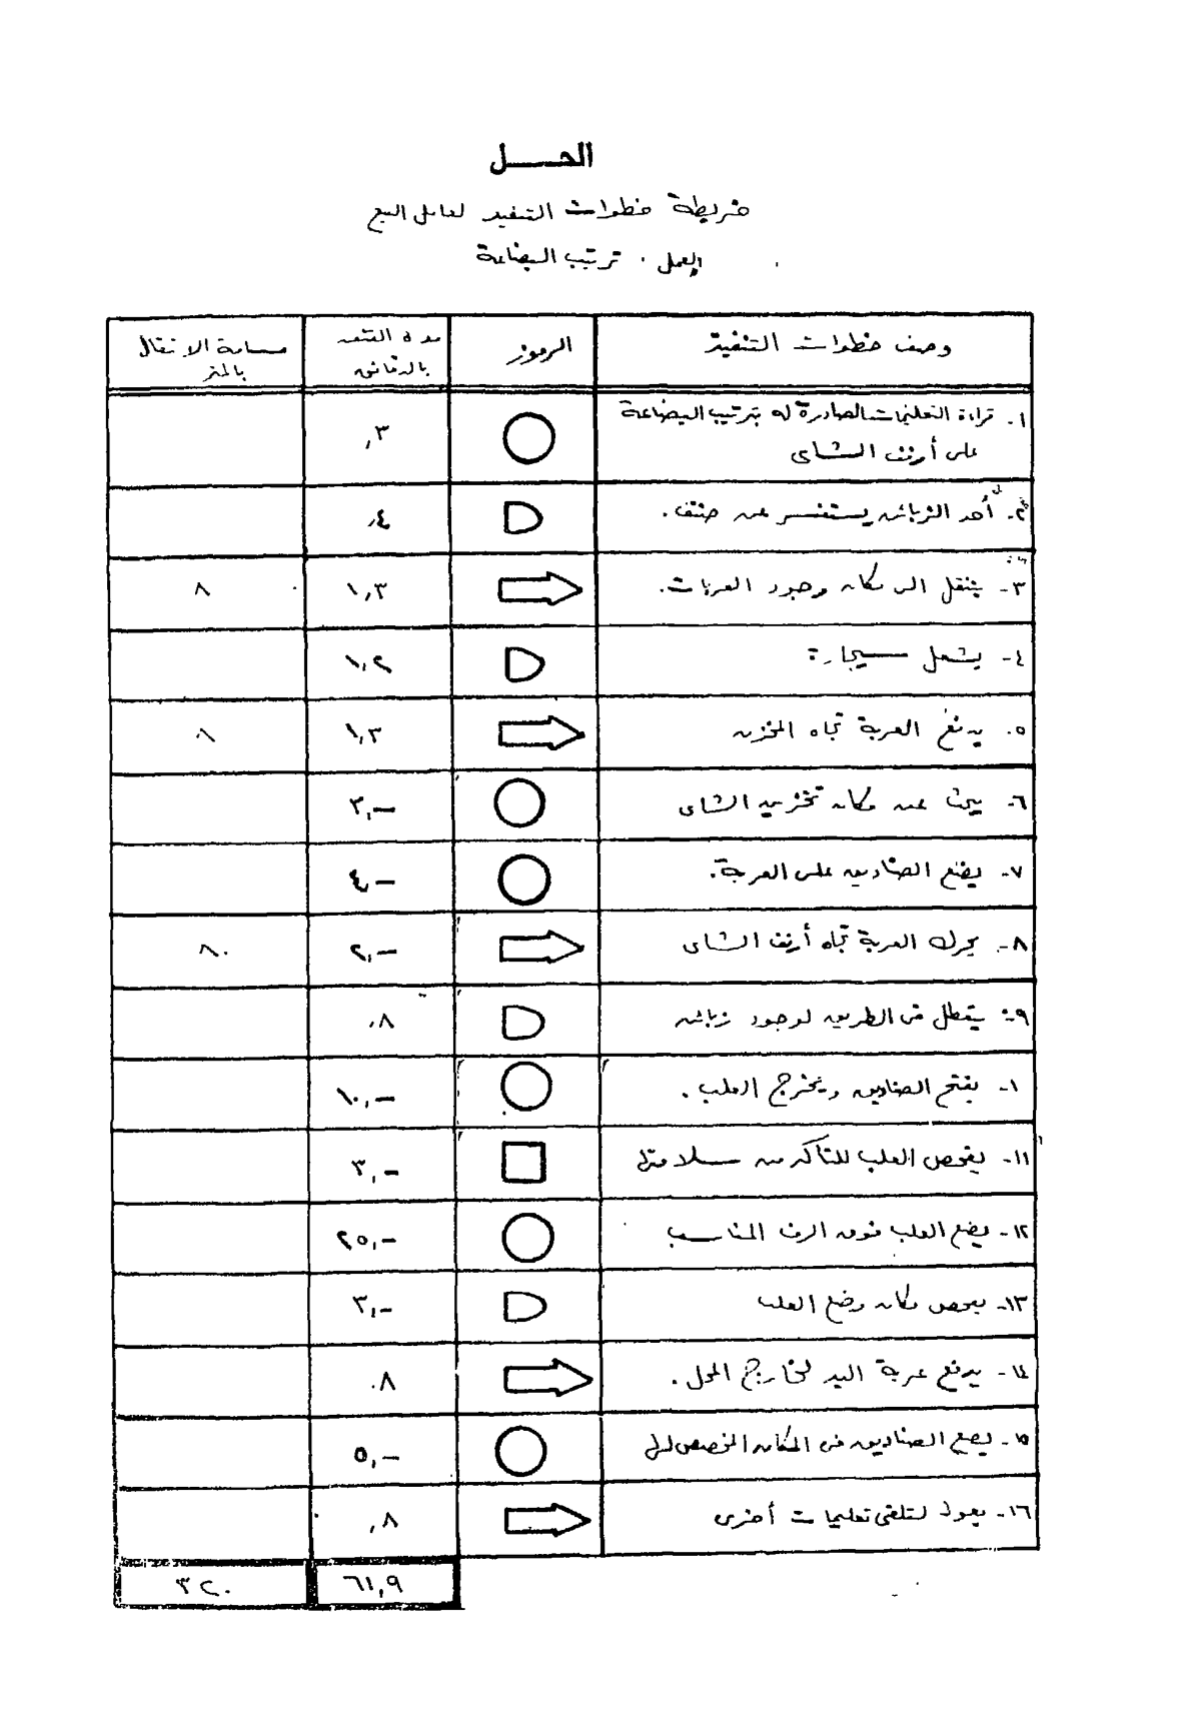 الحــــل
خريطة خطوات التنفيذ لعامل البيع
العمل . ترتيب البضاعة
وصف خطوات التنفيذ الرموز مدة التنفيذ بالدقائق مسافة الانتقال بالمتر
١- قراءة التعليمات الصادرة له بترتيب البضاعة ٣,
على أرفف الشاى
٢- أحد الزبائن يستفسر عن صنف. ٤,
٣- ينتقل الى مكان وجود العربات. ١,٣ ٨
٤- يشعل سيجارة ١,٢
٥- يدفع العربة تجاه المخزن ١,٣ ٨٠
٦- يبحث عن مكان تخزين الشاى ٣,-
٧- يضع الصناديق على العربة. ٤,-
٨- يحرك العربة تجاه أرفف الشاى ٢,- ٨٠
٩- يتعطل فى الطريق لوجود زبائن ٨,
١- يفتح الصناديق ويخرج العلب. ١٠,-
١١- يفحص العلب للتأكد من سلامتها ٣,-
١٢- يضع العلب فوق الرف المناسب ٢٥,-
١٣- يفحص مكان وضع العلب ٣,-
١٤- يدفع عربة اليد لخارج المحل. ٨,
١٥- يضع الصناديق فى المكان المخصص لها ٥,-
١٦- يعود لتلقى تعليمات أخرى ٨,
٦١,٩ ٣٢٠